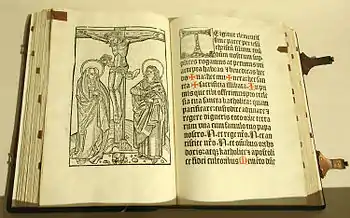 TE igitur clementis
sime pater per iesū
christū filiū tuū
dominū nostrum sup
plices rogamus ac petimus vti
accepta habeas et benedicas hec
do✠na hec mu✠nera hec san
cta ✠ sacrificia illibata In pri
mis que tibi offerimus pro eccle
sia tua sancta katholica: quam
pacificare custodire adunare et
regere digneris toto orbe terra
rum vna cum famulo tuo papa
nostro N. et rege nr̄o N. et an
tistite nr̄o N. et omnibus ortho
doxis atqꝫ katholice et apostoli
ce fidei cultoribus Memento dn̄e